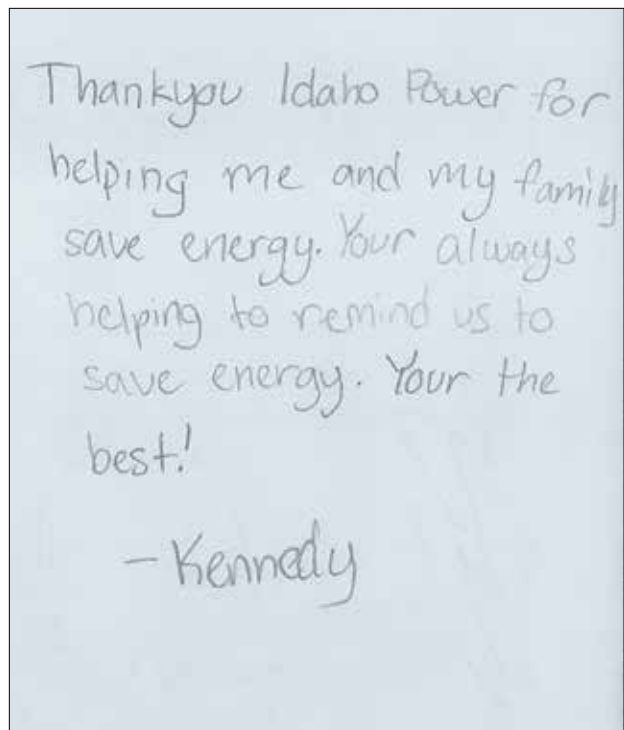 Thankyou Idaho Power for
helping me and my family
save energy. Your always
helping to remind us to
save energy. Your the
best!
- Kennedy